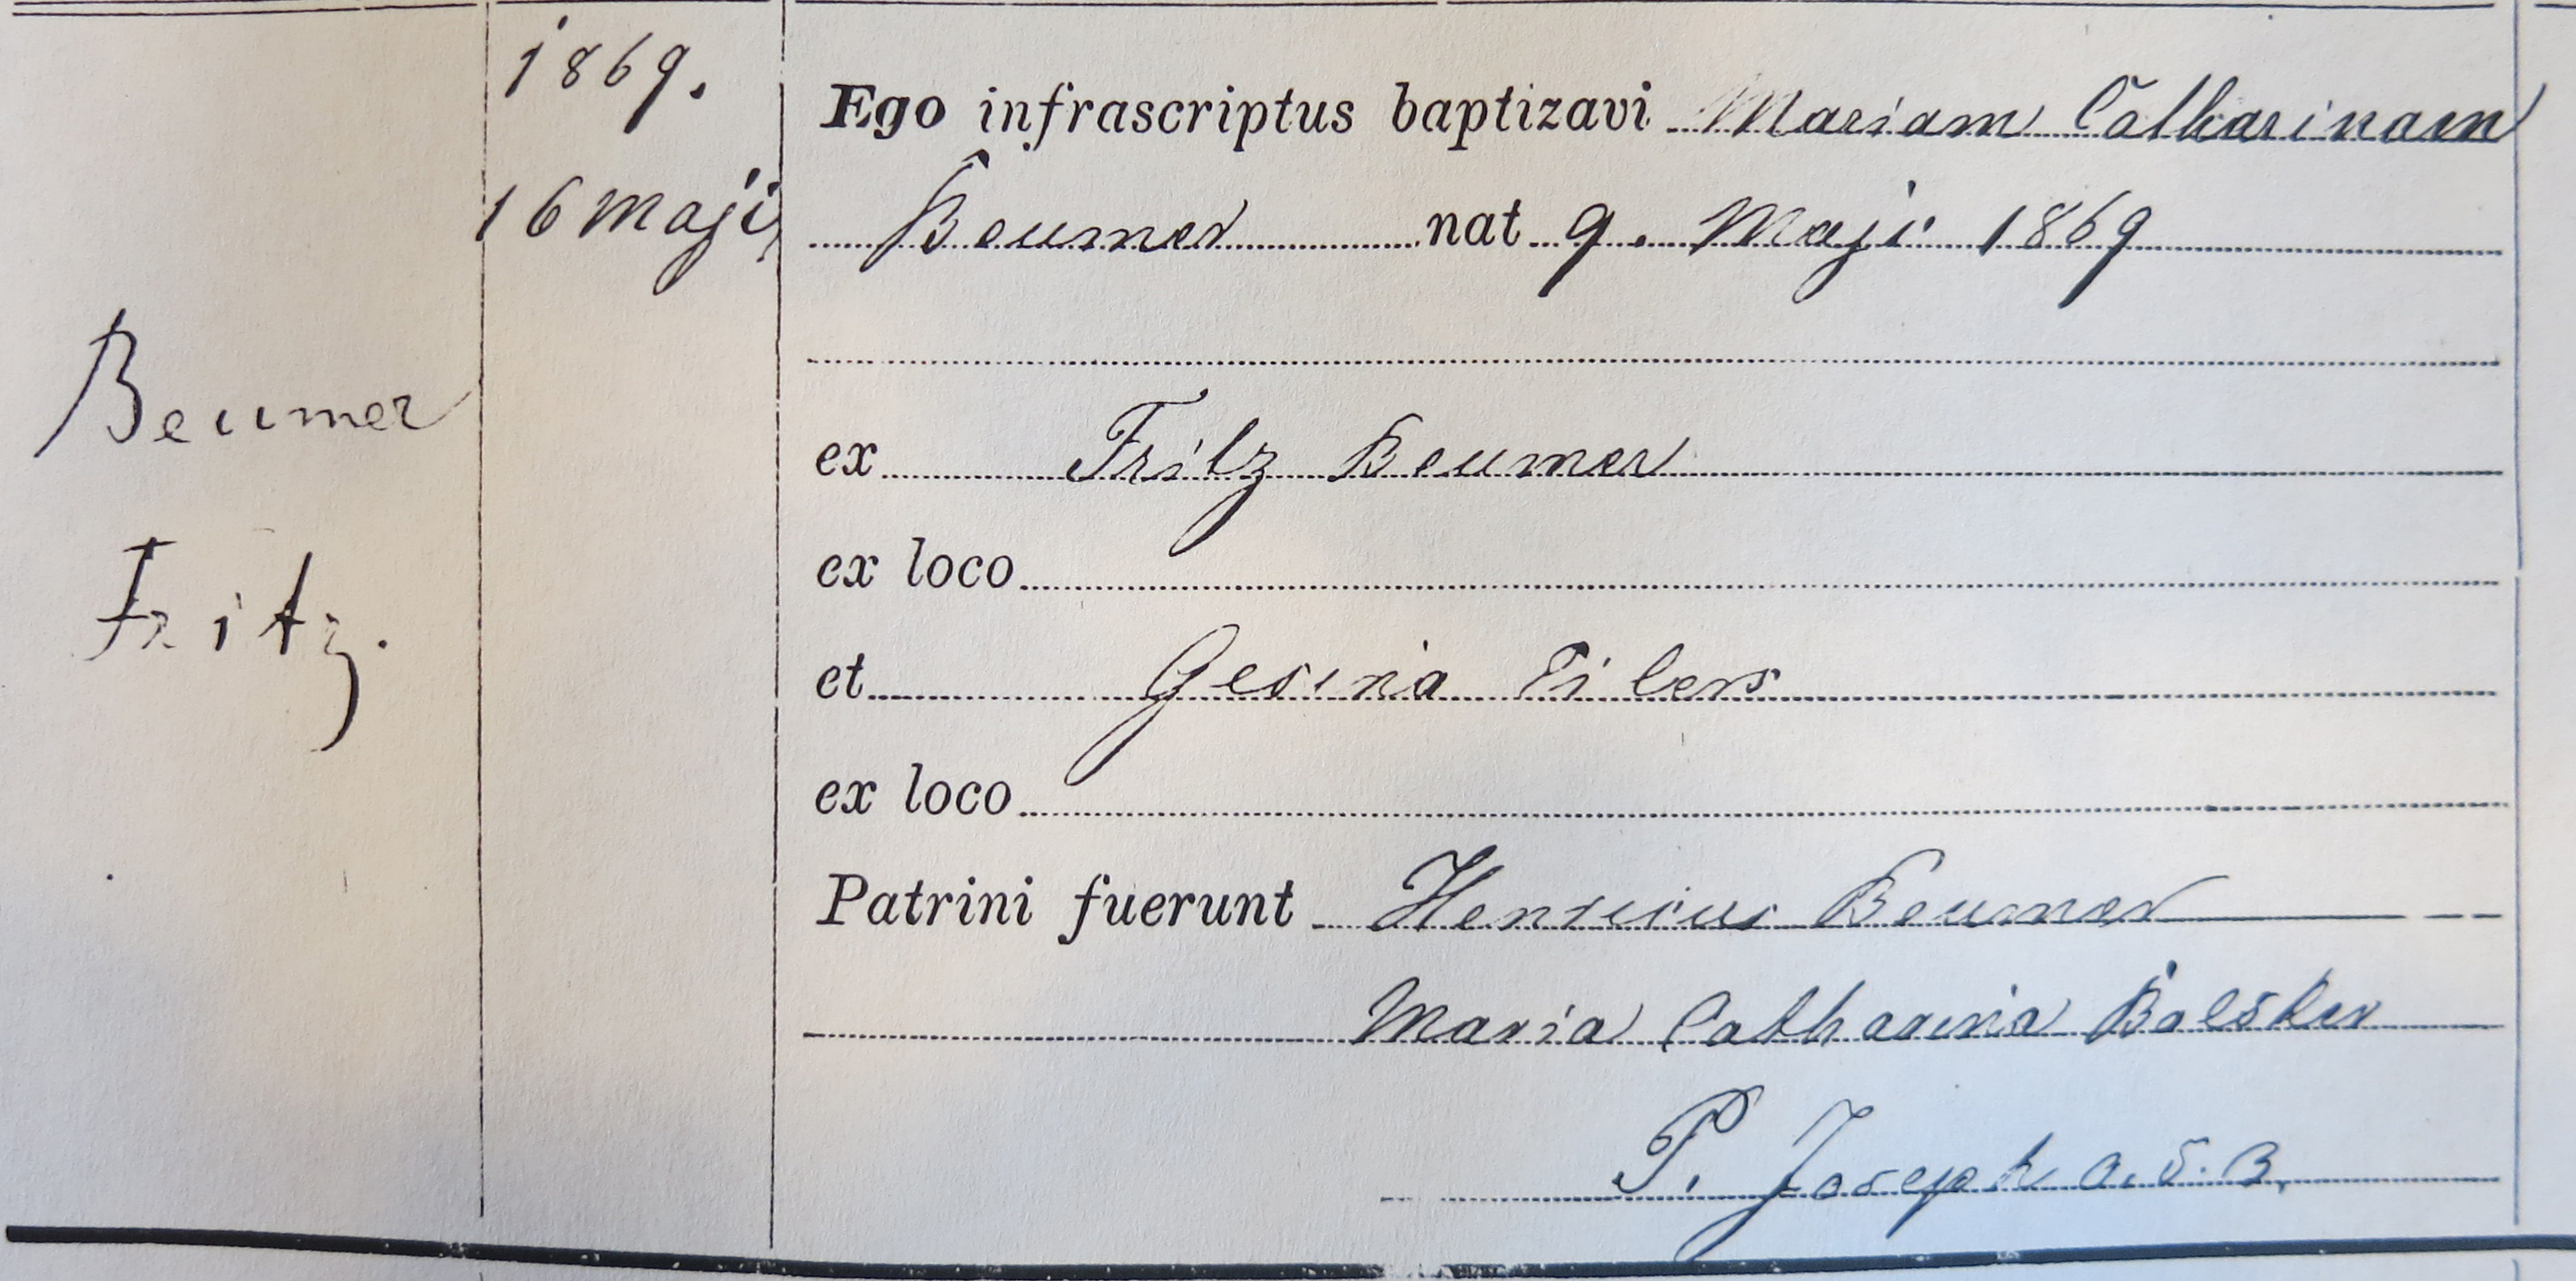 1869.
16 Maji
Beumer
Fritz.
Ego infrascriptus baptizavi Mariam Catharinam
Beumer nat 9. Maji 1869
ex Fritz Beumer
ex loco
et Gesina Eilers
ex loco
Patrini fuerunt Henricus Beumer
Maria Catharina
P. Joseph a. S. B.